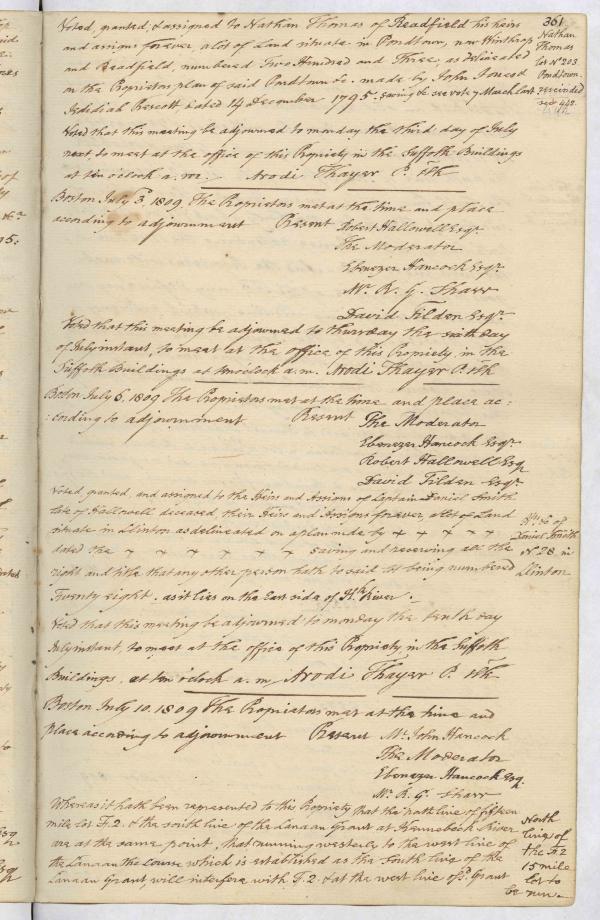 361
Voted, granted, & assigned to Nathan Thomas of Readfield his heirs
and assigns forever, a lot of Land situate in Pondtown, now Winthrop
and Readfield, numbered Two Hundred and Three, as delineated
on the Proprietors plan of said Pondtown &c. made by John Jones &
Jedidiah Prescott dated 14 December 1795. saving &c. see vote 7 March last
Nathan
Thomas
lot No. 203
Pondtown.
rescinded
see 442.
Voted that this meeting be adjourned to monday the third day of July
next, to meet at the office of this Propriety in the Suffolk Buildings
at ten o'clock a. m. Arodi Thayer P. Clk
Boston July 3, 1809. The Proprietors met at the time and place
according to adjournment Present Robert Hallowell Esqr.
The Moderator
Ebenezer Hancock Esqr.
Mr. R. G. Shaw
David Tilden Esqr.
Voted that this meeting be adjourned to thursday the sixth day
of July instant, to meet at the office of this Propriety, in the
Suffolk Buildings at ten oclock a. m. Arodi Thayer P. Clk
Boston July 6, 1809 The Proprietors met at the time and place ac:
:cording to adjournment Present The Moderator
Ebenezer Hancock Esqr.
Robert Hallowell Esq
David Tilden Esqr.
Voted, granted, and assigned to the Heirs and Assigns of Captain Daniel Smith
late of Hallowell deceased, their Heirs and Assigns forever, a lot of Land
situate in Clinton as delineated on a plan made by + + + + +
dated the + + + + + + saving and reserving all the
right and title that any other person hath to said lot being numbered
Twenty eight. as it lies on the East side of River.
Daniel Smith
No. 28. in
Clinton
Voted that this meeting be adjourned to monday the tenth day
July instant, to meet at the office of this Propriety, in the Suffolk
Buildings, at ten o'clock a. m. Arodi Thayer P. Clk
Boston July 10. 1809 The Proprietors met at the time and
place according to adjournment Present Mr. John Hancock
The Moderator
Ebenezer Hancock Esq.
Mr. R. G. Shaw
Whereas it hath been represented to this Propriety that the north line of fifteen
mile lot F. 2. & the south line of the Canaan Grant at Kennebeck River
are at the same point, that running westerly to the west line of
the Canaan the Course which is established as the south line of the
Canaan Grant, will interfere with F. 2. & at the west line of sd. Grant
North
line of
the F. 2
15 mile
lot to
be run.